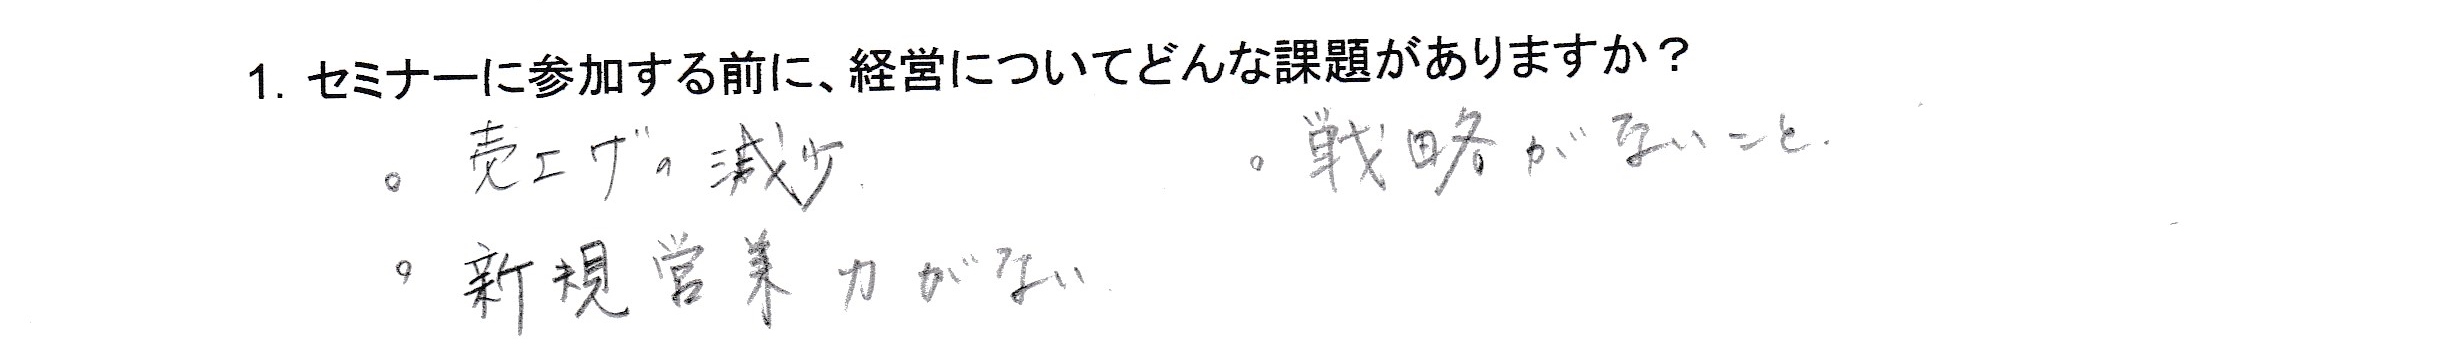 1. セミナーに参加する前に、経営についてどんな課題がありますか？
。売上げの減少.
。戦略がないこと.
。新規営業力がない.